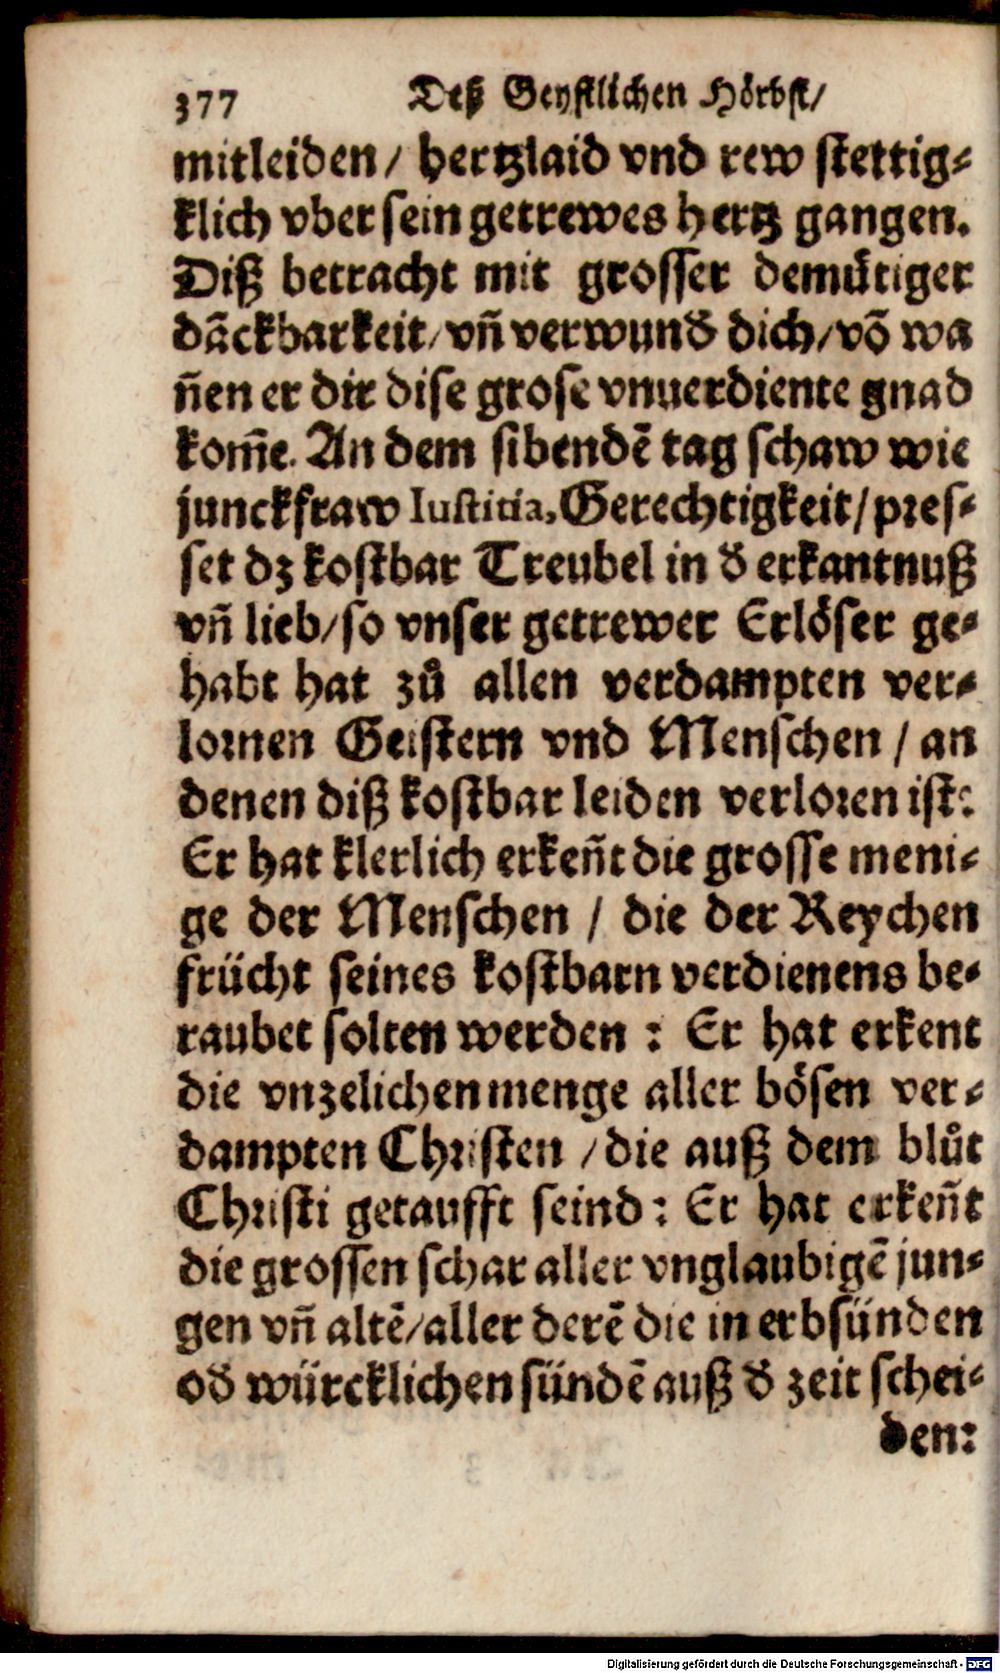 377 Deß Geystlichen Hörbst/
mitleiden/ hertzlaid vnd rew stettig⸗
klich vber sein getrewes hertz gangen.
Diß betracht mit grosser demütiger
dãckbarkeit/vñ verwund dich/võ wa
ñen er dir dise grose vnuerdiente gnad
kom̃e. An dem sibendẽ tag schaw wie
junckfraw Iusticia, Gerechtigkeit/pres⸗
set dz kostbar Treubel in d erkantnuß
vñ lieb/so vnser getrewer Erlöser ge⸗
habt hat zů allen verdampten ver⸗
lornen Geistern vnd Menschen / an
denen diß kostbar leiden verloren ist:
Er hat klerlich erkeñt die grosse meni⸗
ge der Menschen / die der Reychen
frücht seines kostbarn verdienens be⸗
raubet solten werden : Er hat erkent
die vnzelichen menge aller bösen ver⸗
dampten Christen /die auß dem blůt
Christi getaufft seind : Er hat erkeñt
die grossen schar aller vnglaubigẽ jun⸗
gen vñ altẽ/aller derẽ die in erbsünden
od würcklichen sündẽ auß d zeit schei⸗
den:
Digitalisierung gefördert durch die Deutsche Forschungsgemeinschaft - DFG